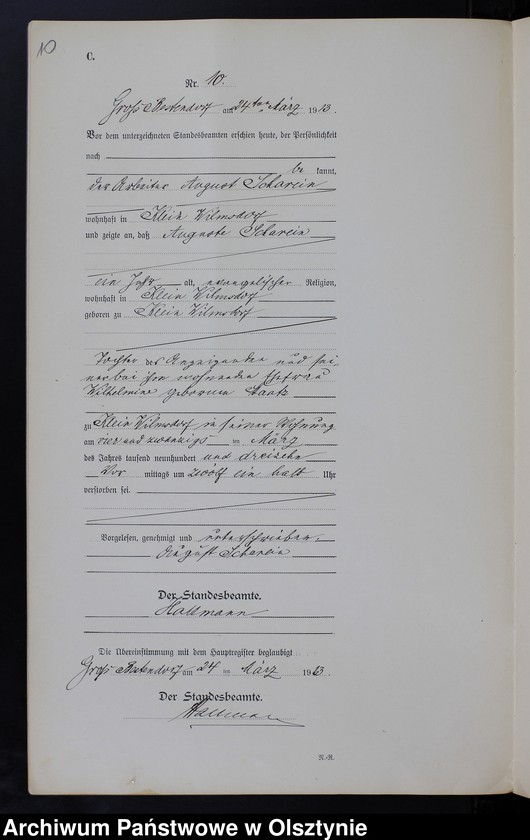 10
C.
Nr. 10.
Groß Bestendorf am 24ten März 1913.
Vor dem unterzeichneten Standesbeamten erschien heute, der Persönlichkeit
nach
be kannt,
der Arbeiter August Scharein
wohnhaft in Klein Wilmsdorf
und zeigte an, daß Auguste Scharein
ein Jahr alt, evangelischer Religion,
wohnhaft in Klein Wilmsdorf
geboren zu Klein Wilmsdorf
Tochter des Anzeigenden und sei-
ner bei ihm wohnenden Ehefrau
Wilhelmine geborenen
zu Klein Wilmsdorf in seiner Wohnung
am vier und zwanzigs ten März
des Jahres tausend neunhundert und dreizehn
Vor mittags um zwölf ein halb Uhr
verstorben sei.
Vorgelesen, genehmigt und unterschrieben.
August Scharein
Der Standesbeamte.
Hallmann
Die Übereinstimmung mit dem Hauptregister beglaubigt
Groß Bestendorf am 24 ten März 1913.
Der Standesbeamte.
Hallmann
N.-R.
Archiwum Państwowe w Olsztynie